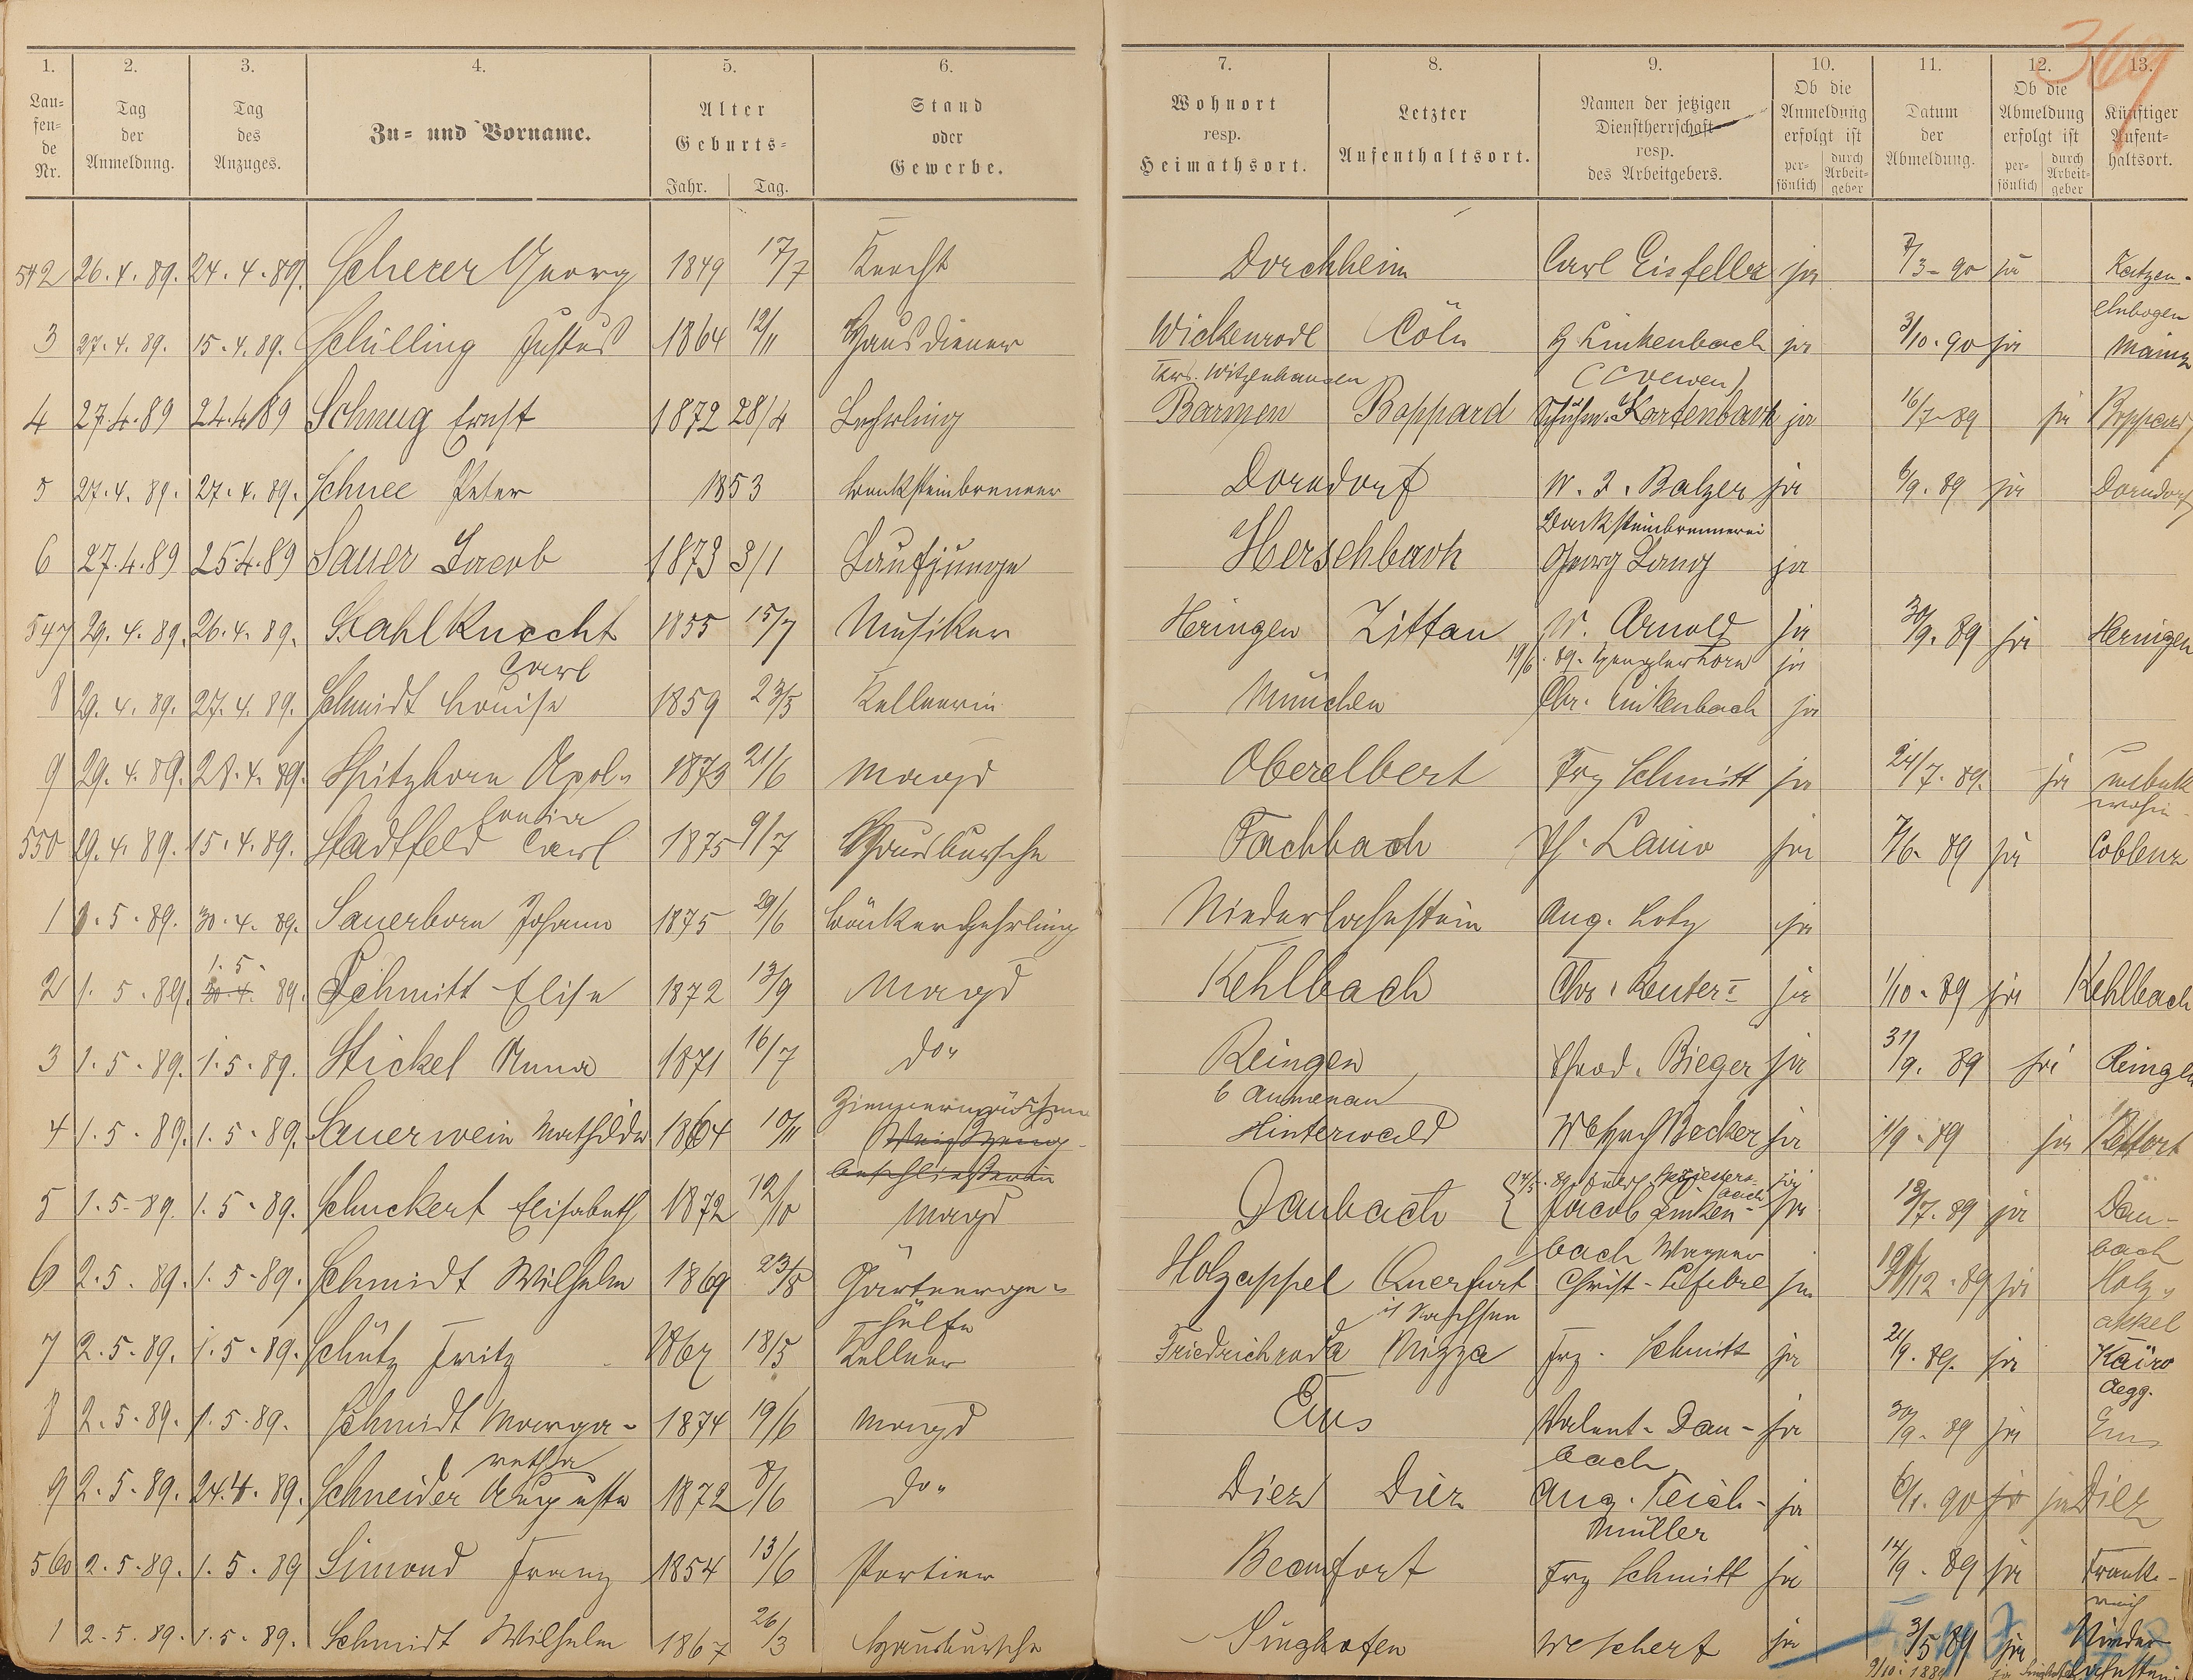 369
1. 2. 3. 4. 5. 6. 7. 8. 9. 10. 11. 12. 13.
Lau= fen= de Nr. Tag der Anmeldung. Tag des Anzuges. Zu= und Vorname. Alter Geburts= Jahr. Tag. Stand oder Gewerbe. Wohnort resp. Heimathsort. Letzter Aufenthaltsort. Namen der jetzigen Dienstherrschaft resp. des Arbeitgebers. Ob die Anmeldung erfolgt ist per= sönlich durch Arbeit= geber Datum der Abmeldung. Ob die Abmeldung erfolgt ist per= sönlich durch Arbeit= geber Künftiger Aufent= haltsort.
542 26.4.89. 24.4.89. Scherer Georg 1849 17/7 Knecht Dorchheim Carl Eisfeller ja 7/3-90 ja Katzen-
elnbogen
3 27.4.89. 15.4.89. Schilling Justus 1864 12/11 Hausdiener Wickenrode Cöln H Linkenbach ja 3/10.90 ja Mainz
Krs. Witzenhausen (Löwen)
4 27.4.89 24.4.89 Schnug Ernst 1872 28/4 Lehrling Barmen Boppard Schuhm. Kartenbach ja 16/7-89 ja Boppard
5 27.4.89. 27.4.89. Schnee Peter 1853 Backsteinbrenner Dorndorf W. J. Balzer ja 6/9.89 ja Dorndorf
Backsteinbrennerei
6 27.4.89 25.4.89 Sauer Jacob 1873 3/1 Laufjunge Herschbach Georg Lang ja
547 29.4.89. 26.4.89. Stahlknecht 1855 15/7 Musiker Heringen Zittau W. Arnold ja 30/9.89 ja Heringen
Carl 19/6.89. ja
8 29.4.89. 27.4.89. Schmidt Louise 1859 23/5 Kellnerin München Chr. Linkenbach ja
9 29.4.89. 28.4.89. Spitzhorn Apol- 1873 21/6 Magd Oberelbert Frz Schmitt ja 24/7.89. ja unbek
lonia wohin
550 29.4.89. 15.4.89. Stadtfeld Carl 1875 9/7 Hausbursche Fachbach Ph. Lauio ja 7/6.89 ja Coblenz
1 1.5.89. 30.4.89. Sauerborn Johann 1875 29/6 Bäckerlehrling Niederlahnstein Aug. Lotz ja
1.5.
2 1.5.89. 30.4. 89. Schmitt Elise 1872 13/9 Magd Kehlbach Chr. Reuter I ja 1/10-89 ja Kehlbach
3 1.5.89. 1.5.89. Stickel Anna 1871 16/7 do" Reingen Theod. Bieger ja 31/9.89 ja Reingen
b Aumenau
Zimmermädchen
4 1.5.89. 1.5.89. Sauerwein Mathilde 1864 10/11 Weißzeug- Hinterwald Becker ja 1/9-89 ja Kettert
beschließerin
5 1.5-89. 1.5.89. Schuckert Elisabeth 1872 12/10 Magd Daubach Jacob Linken- ja 12/7.89 ja Dau-
bach Wagner bach
6 2.5.89. 1.5-89. Schmidt Wilhelm 1869 23/8 Gärtnerge- Holzappel Querfurt Christ-Lefebre ja 12.89 ja Holz-
hülfe i/ Sachsen appel
7 2.5.89. 1.5-89. Schütz Fritz 1867 18/5 Kellner Friedrichroda Nizza Frz. Schmitt ja 21/9.89. ja Kairo
Aegg.
8 2.5-89. 1.5.89. Schmidt Marga- 1874 19/6 Magd Ems Valent. Dau- ja 30/9.89 ja Ems
retha bach
9 2.5.89. 24.4.89. Schneider Auguste 1872 8/6 do" Diez Diez Aug. Teich- ja 6/1.90 ja ja Diez
müller
560 2.5.89. 1.5.89 Simond Franz 1854 13/6 Portier Beaufort Frz Schmitt ja 14/9.89 ja Frank-
reich
1 2.5.89. 1.5.89. Schmidt Wilhelm 1867 26/3 Hausbursche Singhofen Weschert ja 3/5 89 ja Nieder
9/10.1889 lahnstein